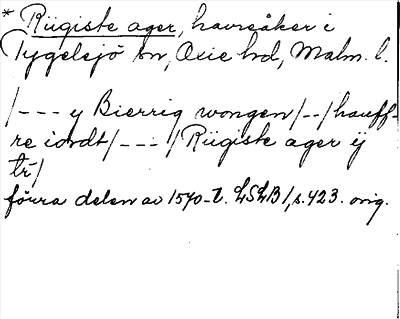 * Rügiste ager, havreåker i
Tygelsjö sn, Oxie hrd, Malm. l.
/--- y Bierrig wongen /--/ hauff-
re iordt /---/ Rügiste ager ÿ
tr/
förra delen av 1540-t. LSLB 1, s. 423. orig.